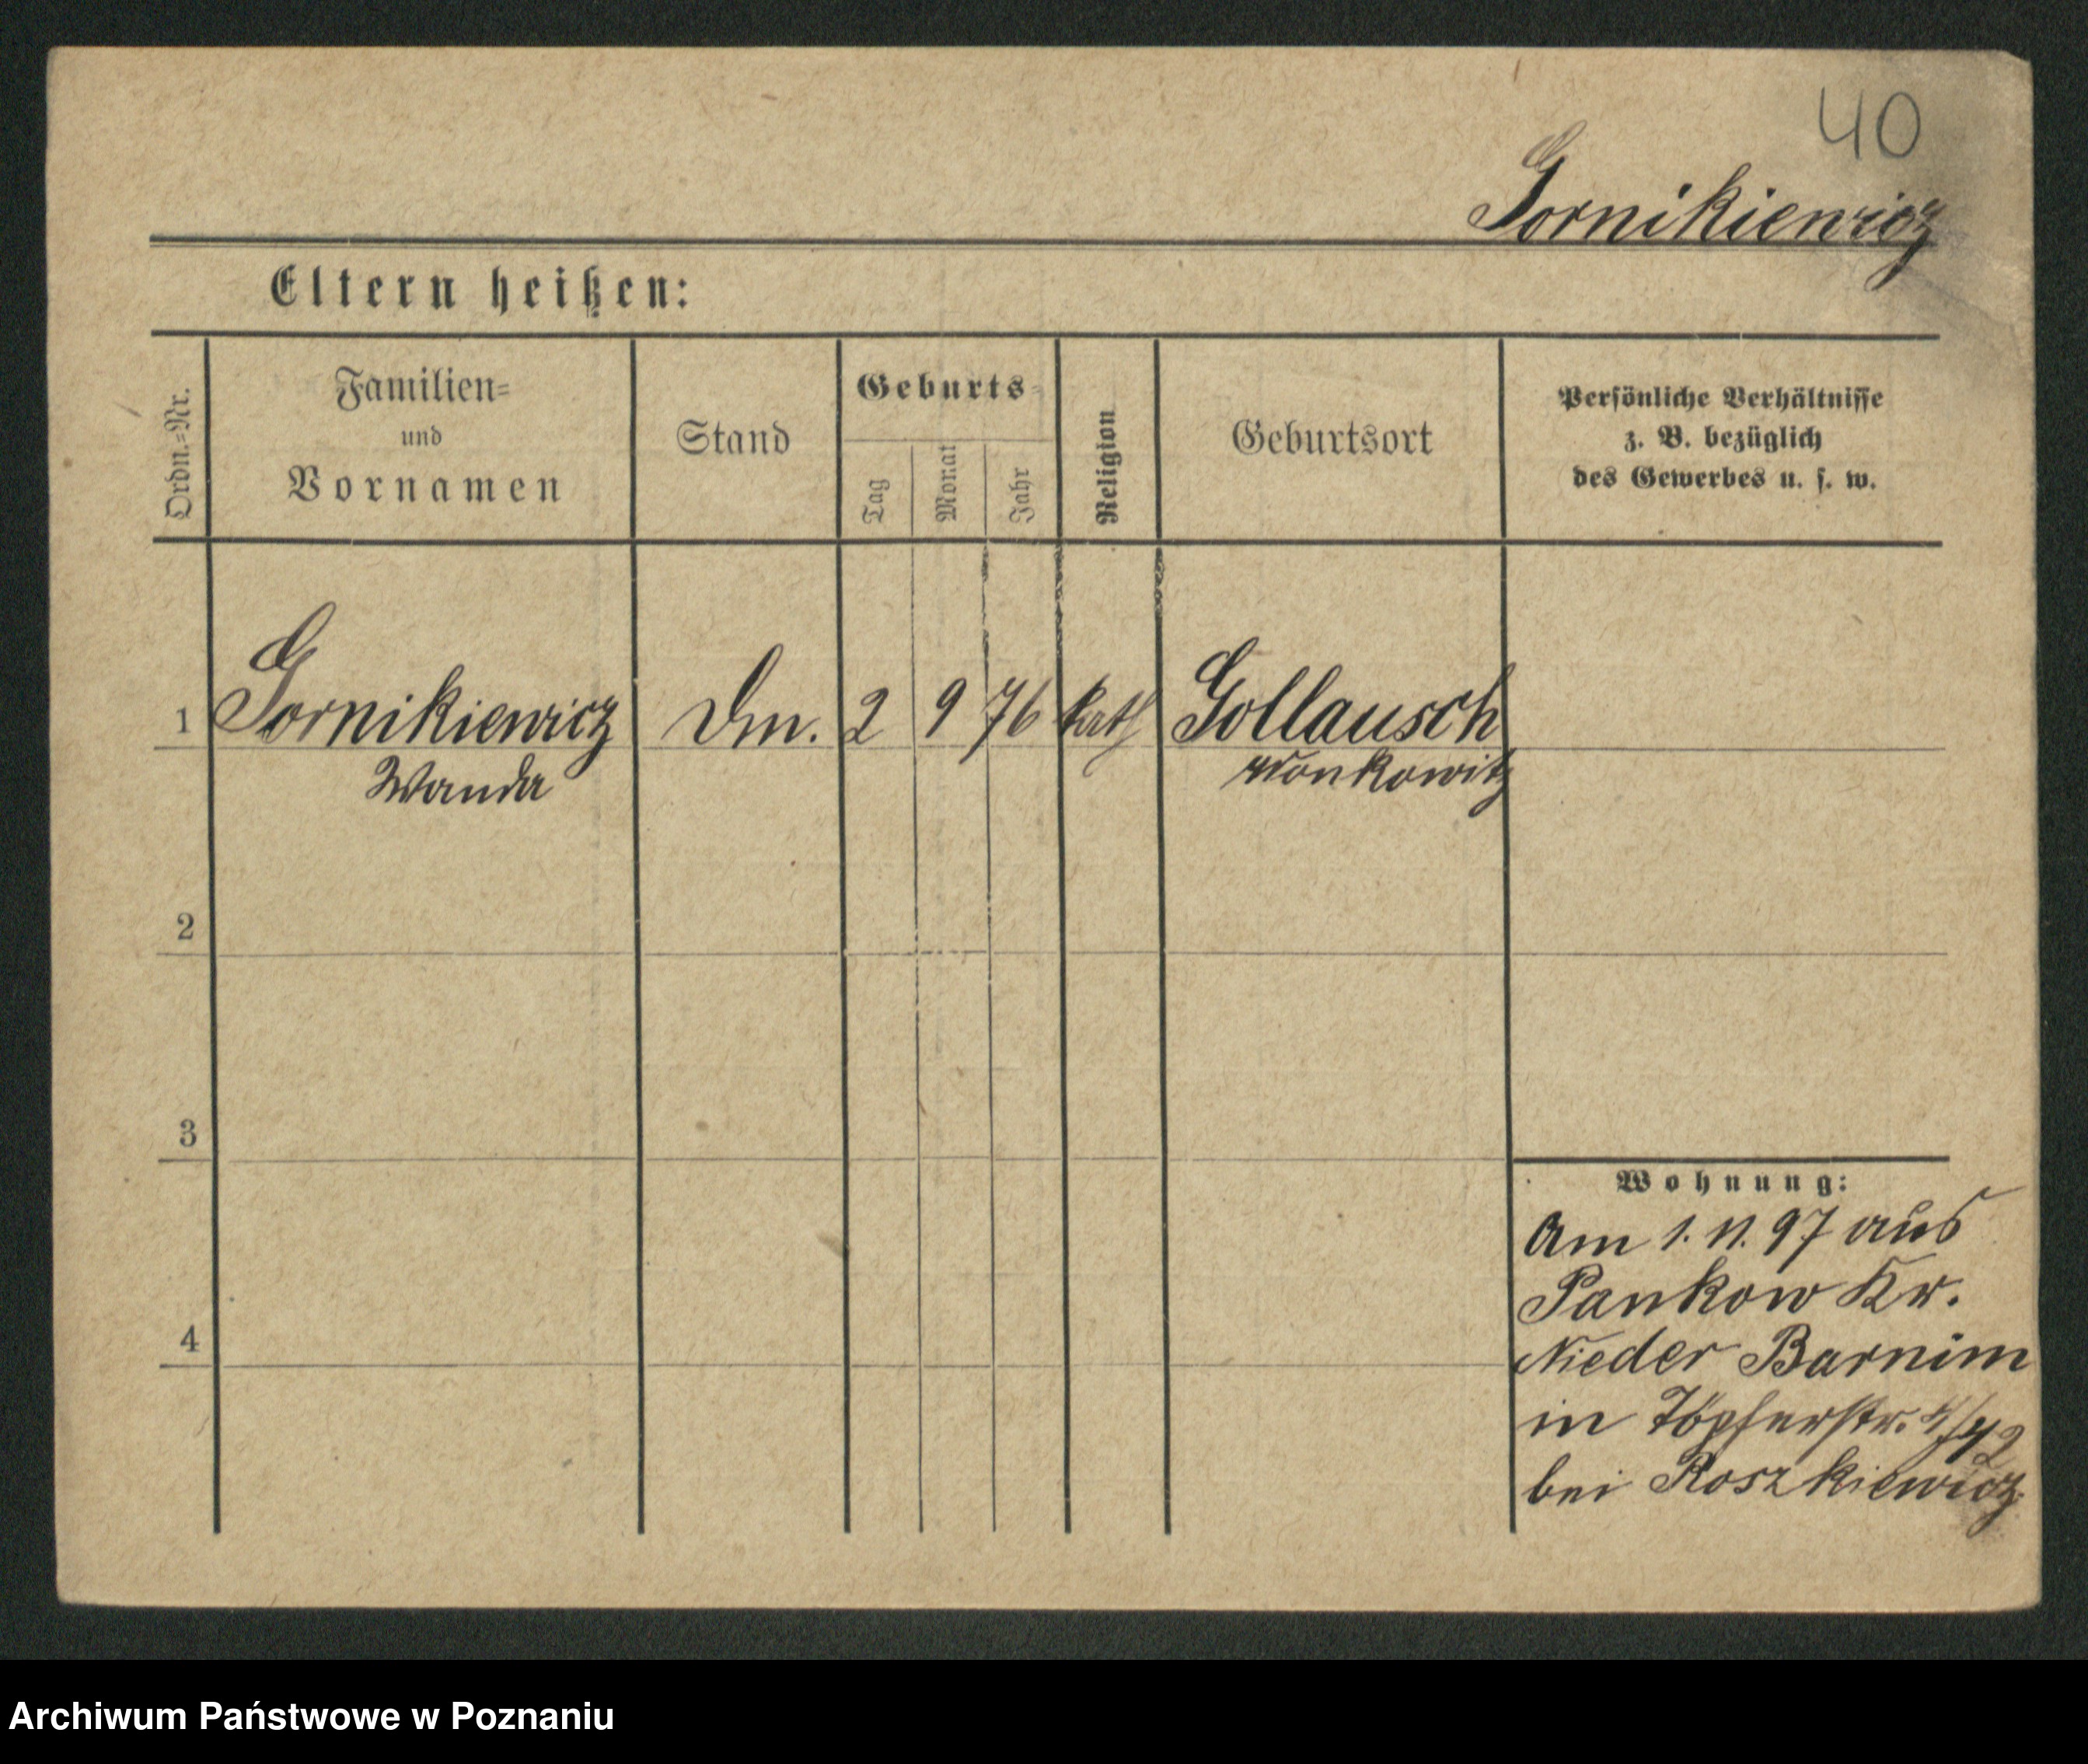 40
Gornikiewicz
Eltern heißen:
Ordn.=Nr.
Familien=
und
Vornamen
Stand
Geburts=
Tag
Monat
Jahr
Religion
Geburtsort
Persönliche Verhältnisse
z. B. bezüglich
des Gewerbes u. s. w.
1 Gornikiewicz
Wanda
2 9 76 kath
Gollausch
Wonkowitz
2
3
4
Wohnung:
Am 1. 11. 97 aus
Pankow Kr.
Nieder Barnim
in Töpferstr.
bei Roszkiewicz
Archiwum Państwowe w Poznaniu